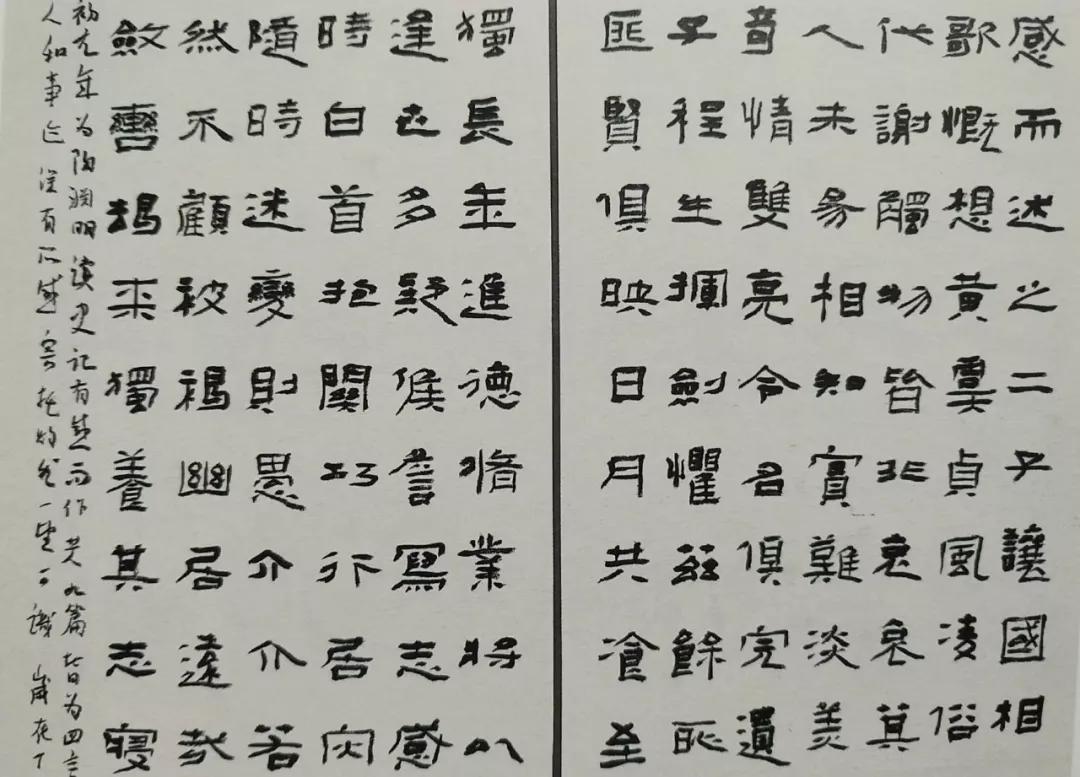 感而述之二子讓國相
歌慨想黃虞貞風淩俗
代謝觸物皆非哀哀箕
人未易相知實難淡美
奇情雙亮令名俱完遺
子程生揮劍懼茲餘恥
匪賢俱映日月共飡至
獨長年進德脩業將以
逢世多疑候詹寫志感
時白首抱關巧行居灾
隨時迷變則愚介介若
然不顧被褐幽居遠哉
斂轡朅來獨養其志寢
为陶渊明读史记有感而作共九篇皆为四言
人和事迹深有所感寄托 一望可识 岁在丁